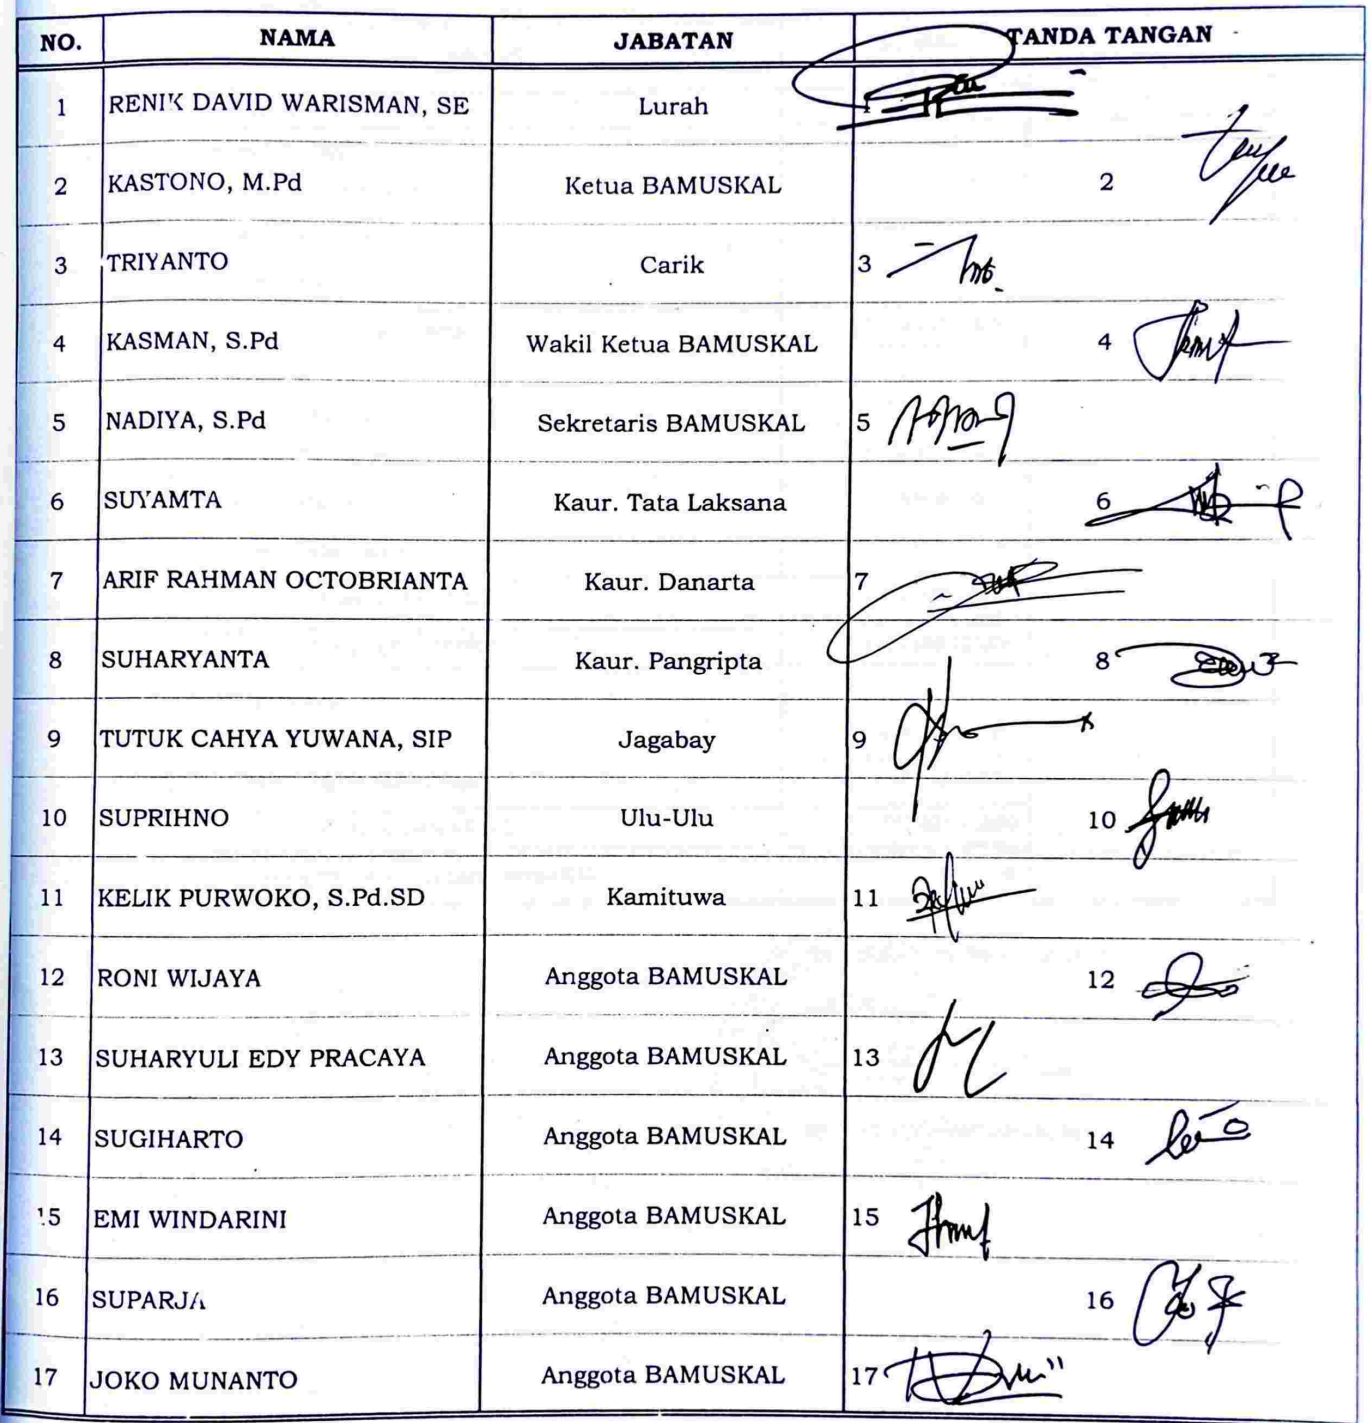 NO. NAMA JABATAN TANDA TANGAN
1 RENIK DAVID WARISMAN, SE Lurah 1
2 KASTONO, M.Pd Ketua BAMUSKAL 2
3 TRIYANTO Carik 3
4 KASMAN, S.Pd Wakil Ketua BAMUSKAL 4
5 NADIYA, S.Pd Sekretaris BAMUSKAL 5
6 SUYAMTA Kaur. Tata Laksana 6
7 ARIF RAHMAN OCTOBRIANTA Kaur. Danarta 7
8 SUHARYANTA Kaur. Pangripta 8
9 TUTUK CAHYA YUWANA, SIP Jagabay 9
10 SUPRIHNO Ulu-Ulu 10
11 KELIK PURWOKO, S.Pd.SD Kamituwa 11
12 RONI WIJAYA Anggota BAMUSKAL 12
13 SUHARYULI EDY PRACAYA Anggota BAMUSKAL 13
14 SUGIHARTO Anggota BAMUSKAL 14
15 EMI WINDARINI Anggota BAMUSKAL 15
16 SUPARJA Anggota BAMUSKAL 16
17 JOKO MUNANTO Anggota BAMUSKAL 17